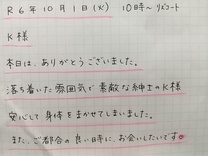 R6年10月1日(火) 10時〜リピート
K様
本日は、ありがとうございました。
落ち着いた雰囲気で素敵な紳士のK様
安心して身体をまかせてしまいました。
また、ご都合の良い時に、お会いしたいです